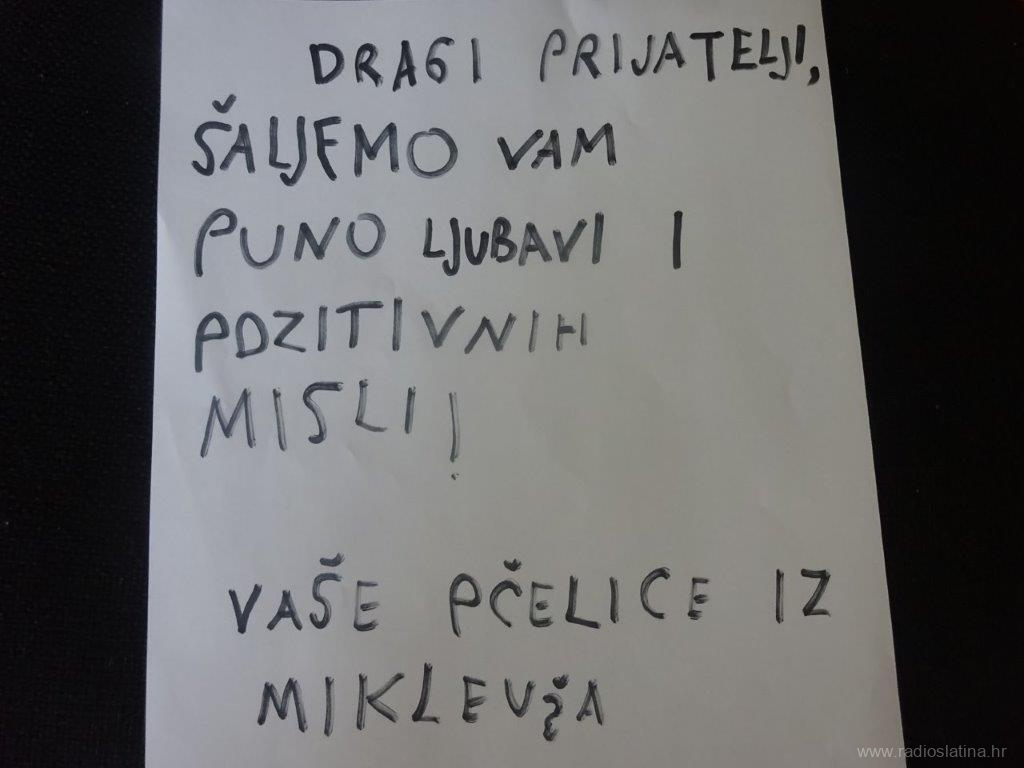 DRAGI PRIJATELJI,
ŠALJEMO VAM
PUNO LJUBAVI I
POZITIVNIH
MISLI!
VAŠE PČELICE IZ
MIKLEUŠA
www.radioslatina.hr